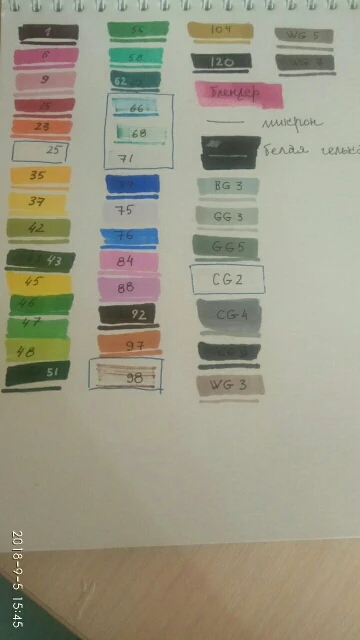 1
6
9
15
23
25
35
37
42
43
45
46
47
48
51
56
58
62
66
68
71
75
76
84
88
92
97
98
104
120
блендер
микрон
белая
BG 3
GG 3
GG5
CG2
CG 4
WG 3
WG 5
2018-9-5 15:45